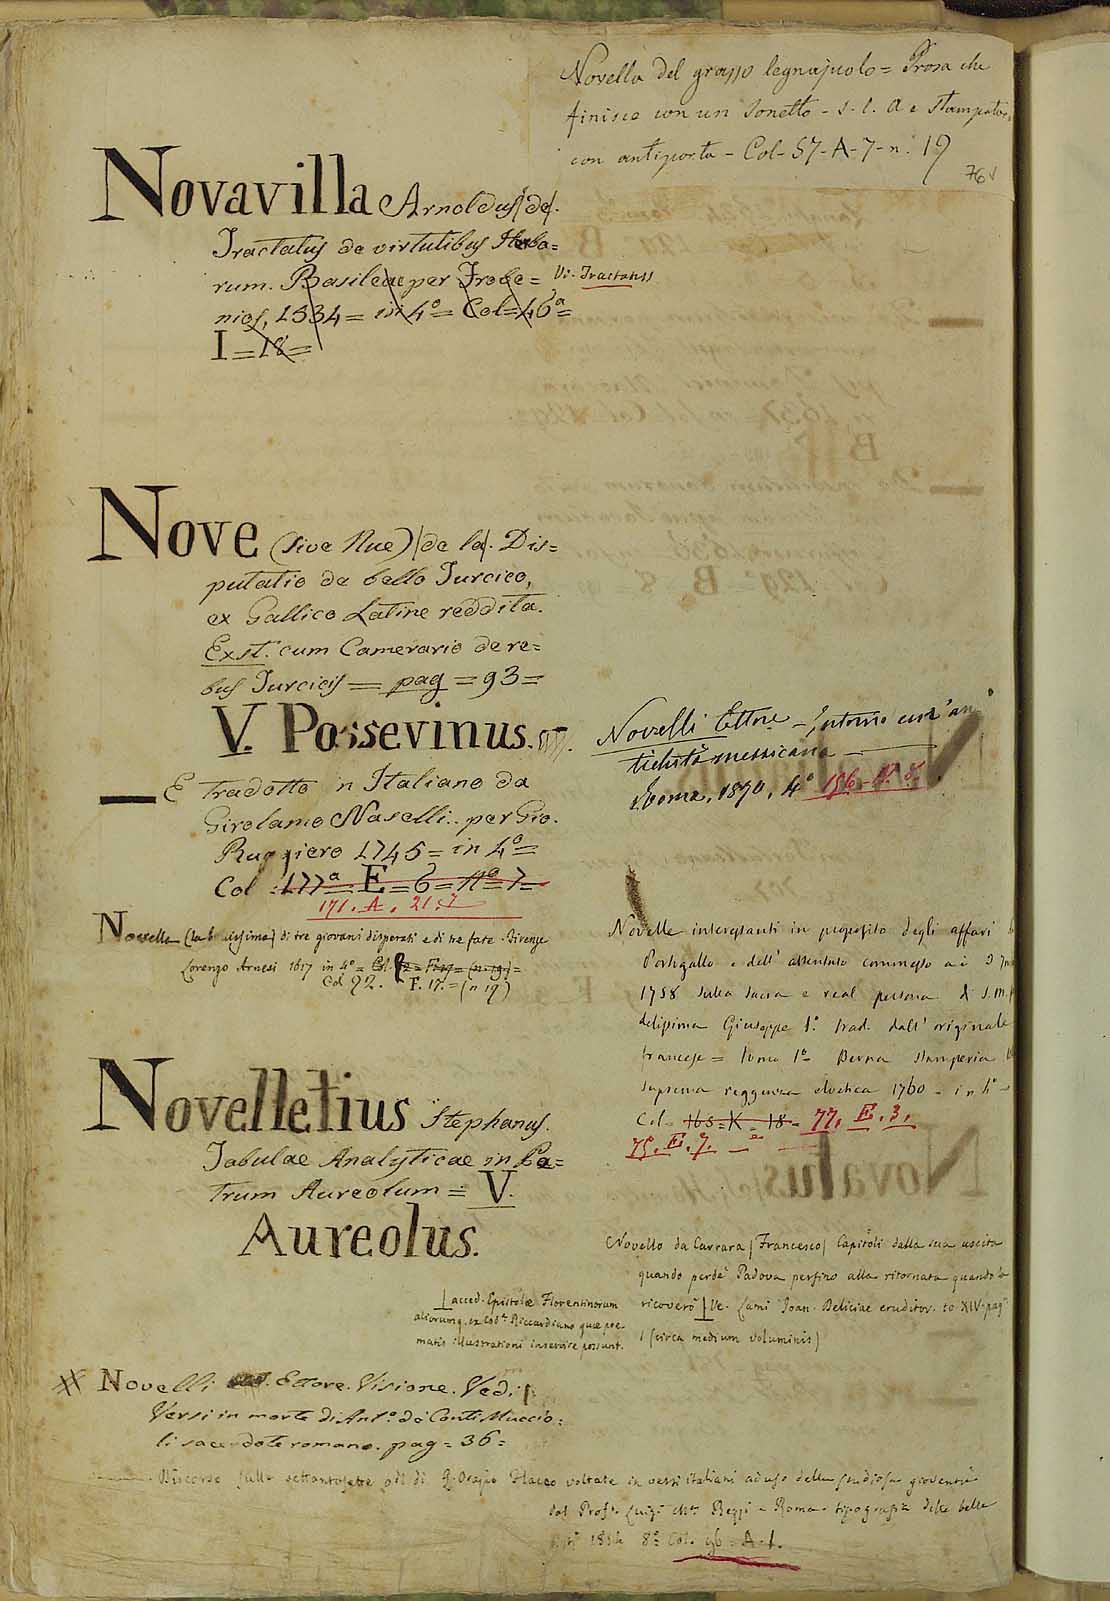 Novella del grasso legnajuolo = Prosa che
finisce con un sonetto - s. l. a e stampatore
con antiporta - Col - 57 - A - 7 - n: 19
76
Novavilla Arnoldus (de).
Tractatus de virtutibus Herba=
rum. Basileae per Frobe= Vi. Tractatuss
nios, 1534 = in 4º = Col = 46ª =
I = 18 =
Nove (sive Nue) (de la). Dis=
putatio de bello Turcico,
ex Gallico Latine reddita.
Exst. cum Camerario de re=
bus Turcicis = pag = 93 =
V. Possevinus.
E tradotto n Italiano da
Girolamo Naselli.. per Gio.
Ruggiero 1745 = in 4º =
Col : 177ª E = 6 = Nº 7 =
171. A. 21.7
Novelli Ettore - Intorno un'an
tichità messicana
Roma, 1890, 4º 156
Novella di tre giovani disperati e di tre fate. Firenze
Lorenzo Arnesi 1617 in 4º = Col.
Col 92. F. 17. = (n 19)
Novelle interessanti in proposito degli affari
Portogallo e dell' attentato commesso a i 3
1758 sulla sacra e real persona di S. M. f
delissima Giuseppe 1º. trad. dall' originale
francese = Tomo 1º Berna stamperia
suprema reggenza elvetica 1760 - in 4º -
Col - 165 = K = 18 - 77. E. 3.
75. E. 7.
Novelletius Stephanus.
Tabulae Analyticae in Pa=
trum Aureolum = V.
Aureolus.
Novello da Carrara (Francesco) Capitoli dalla sua uscita
quando perdè Padova perfino alla ritornata quando la
ricoverò Ve. Lami Joan. Deliciae eruditor. to XIV. pag.
1 (circa medium voluminis)
acced. Epistolæ Florentinorum
aliorumq. ex Cod. Riccardiano quæ poe-
matis illustrationi inservire possunt.
# Novelli Ettore. Visione. Vedi
Versi in morte di Antº. de' Conti Muccio=
li sacerdote romano. pag = 36 =
Discorso sulle settantasette odi di Q. Orazio Flacco voltate in versi italiani ad uso della studiosa gioventù
dal Prof. Luigi Mª Rezzi - Roma - tipografia delle belle
8º Col. 96 = A. 1.